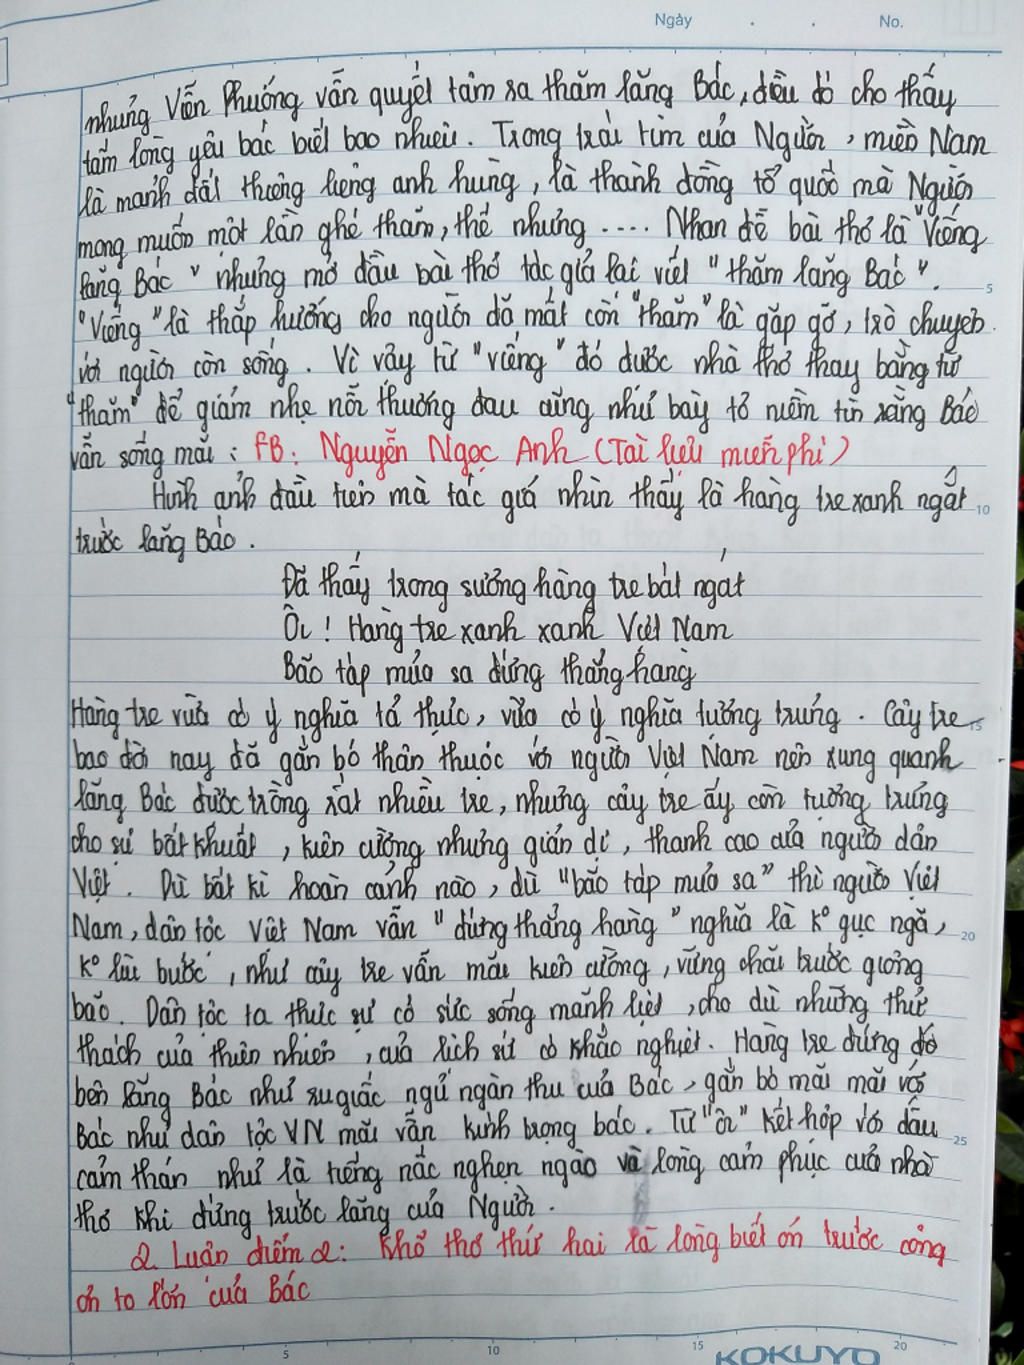 Ngày . . No.
nhưng Viễn Phương vẫn quyết tâm ra thăm lăng Bác, điều đó cho thấy
tấm lòng yêu bác biết bao nhiêu. Trong trái tim của Người, miền Nam
là mảnh đất thương liêng anh hùng, là thành đồng tổ quốc mà Người
mong muốn một lần ghé thăm, thế nhưng .... Nhan đề bài thơ là "Viếng
lăng Bác" nhưng mở đầu bài thơ tác giả lại viết "thăm lăng Bác".
5
"Viếng" là thắp hương cho người đã mất còn "thăm" là gặp gỡ, trò chuyện
với người còn sống. Vì vậy từ "viếng" đó được nhà thơ thay bằng từ
"thăm" để giảm nhẹ nỗi thương đau cũng như bày tỏ niềm tin rằng Bác
vẫn sống mãi : FB: Nguyễn Ngọc Anh (Tài liệu miễn phí)
Hình ảnh đầu tiên mà tác giả nhìn thấy là hàng tre xanh ngát
10
trước lăng Bác.
Đã thấy trong sương hàng tre bát ngát
Ôi ! Hàng tre xanh xanh Việt Nam
Bão táp mưa sa đứng thẳng hàng
Hàng tre vừa có ý nghĩa tả thực, vừa có ý nghĩa tượng trưng. Cây tre
15
bao đời nay đã gắn bó thân thuộc với người Việt Nam nên xung quanh
lăng Bác được trồng rất nhiều tre, nhưng cây tre ấy còn tượng trưng
cho sự bất khuất, kiên cường nhưng giản dị, thanh cao của người dân
Việt. Dù bất kì hoàn cảnh nào, dù "bão táp mưa sa" thì người Việt
Nam, dân tộc Việt Nam vẫn "đứng thẳng hàng" nghĩa là k° gục ngã,
20
k° lùi bước, như cây tre vẫn mãi kiên cường, vững chãi trước giông
bão. Dân tộc ta thực sự có sức sống mãnh liệt, cho dù những thử
thách của thiên nhiên, của lịch sử có khắc nghiệt. Hàng tre đứng đó
bên lăng Bác như ru giấc ngủ ngàn thu của Bác, gắn bó mãi mãi với
Bác như dân tộc VN mãi vẫn kính trọng bác. Từ "ôi" kết hợp với dấu
25
cảm thán như là tiếng nấc nghẹn ngào và lòng cảm phục của nhà
thơ khi đứng trước lăng của Người.
2. Luận điểm 2: Khổ thơ thứ hai là lòng biết ơn trước công
ơn to lớn của Bác
5 10 15 20
KOKUYO